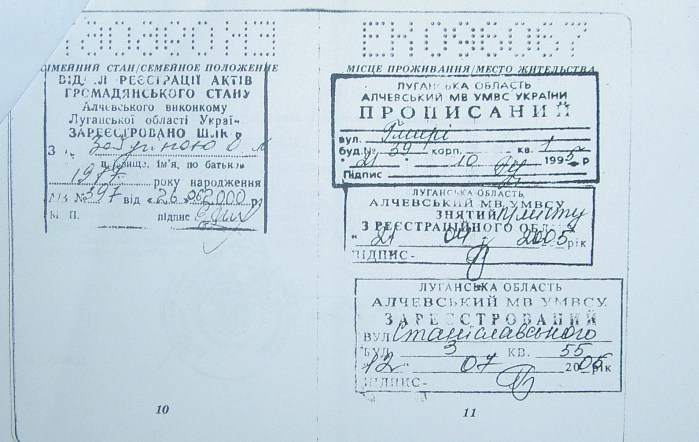 СІМЕЙНИЙ СТАН/СЕМЕЙНОЕ ПОЛОЖЕНИЕ
ВІДДІЛ РЕЄСТРАЦІЇ АКТІВ
ГРОМАДЯНСЬКОГО СТАНУ
Алчевського виконкому
Луганської області Україн
ЗАРЕЄСТРОВАНО ШЛЮБ
З
прізвище, ім'я, по батькові
1977 року народження
№ 397 від «26» 06 2000 р
М. П. підпис
10
ЕК096067
МІСЦЕ ПРОЖИВАННЯ/МЕСТО ЖИТЕЛЬСТВА
ЛУГАНСЬКА ОБЛАСТЬ
АЛЧЕВСЬКИЙ МВ УМВС УКРАЇНИ
ПРОПИСАНИЙ
вул. Гмирі
буд.№ 39 корп. кв. 1
"21" 10 1995 р
Підпис
ЛУГАНСЬКА ОБЛАСТЬ
АЛЧЕВСЬКИЙ МВ УМВСУ
ЗНЯТИЙ
З РЕЄСТРАЦІЙНОГО ОБЛІКУ
"21" 04 2005 рік
ПІДПИС-
ЛУГАНСЬКА ОБЛАСТЬ
АЛЧЕВСЬКИЙ МВ УМВСУ
ЗАРЕЄСТРОВАНИЙ
ВУЛ Станіславського
БУД. 3 КВ. 55
"12" 07 2006 рік
ПІДПИС-
11